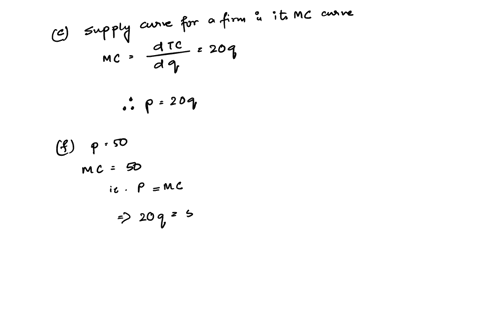 (e) Supply curve for a firm is its MC curve
MC = dTC/dq = 20q
∴ P = 20q
(f) P = 50
MC = 50
ie. P = MC
=> 20q = 5